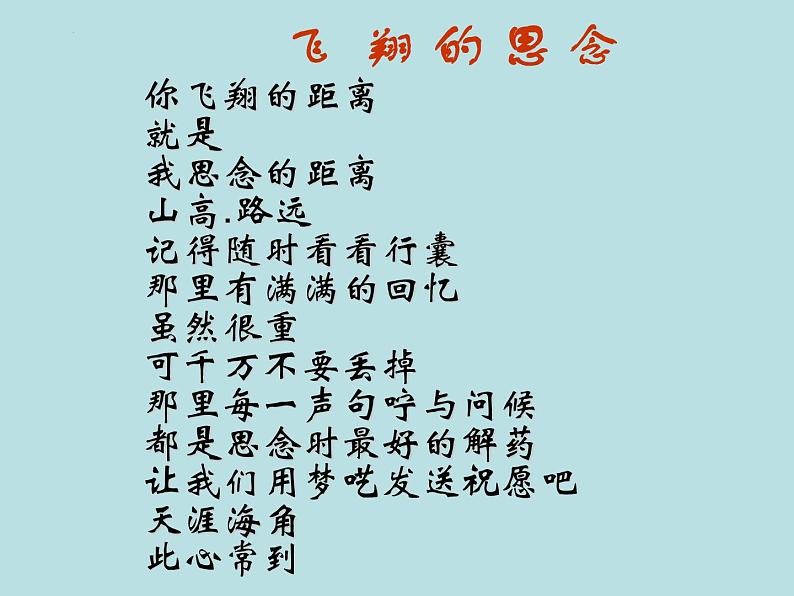 飞翔的思念
你飞翔的距离
就是
我思念的距离
山高.路远
记得随时看看行囊
那里有满满的回忆
虽然很重
可千万不要丢掉
那里每一声句咛与问候
都是思念时最好的解药
让我们用梦呓发送祝愿吧
天涯海角
此心常到